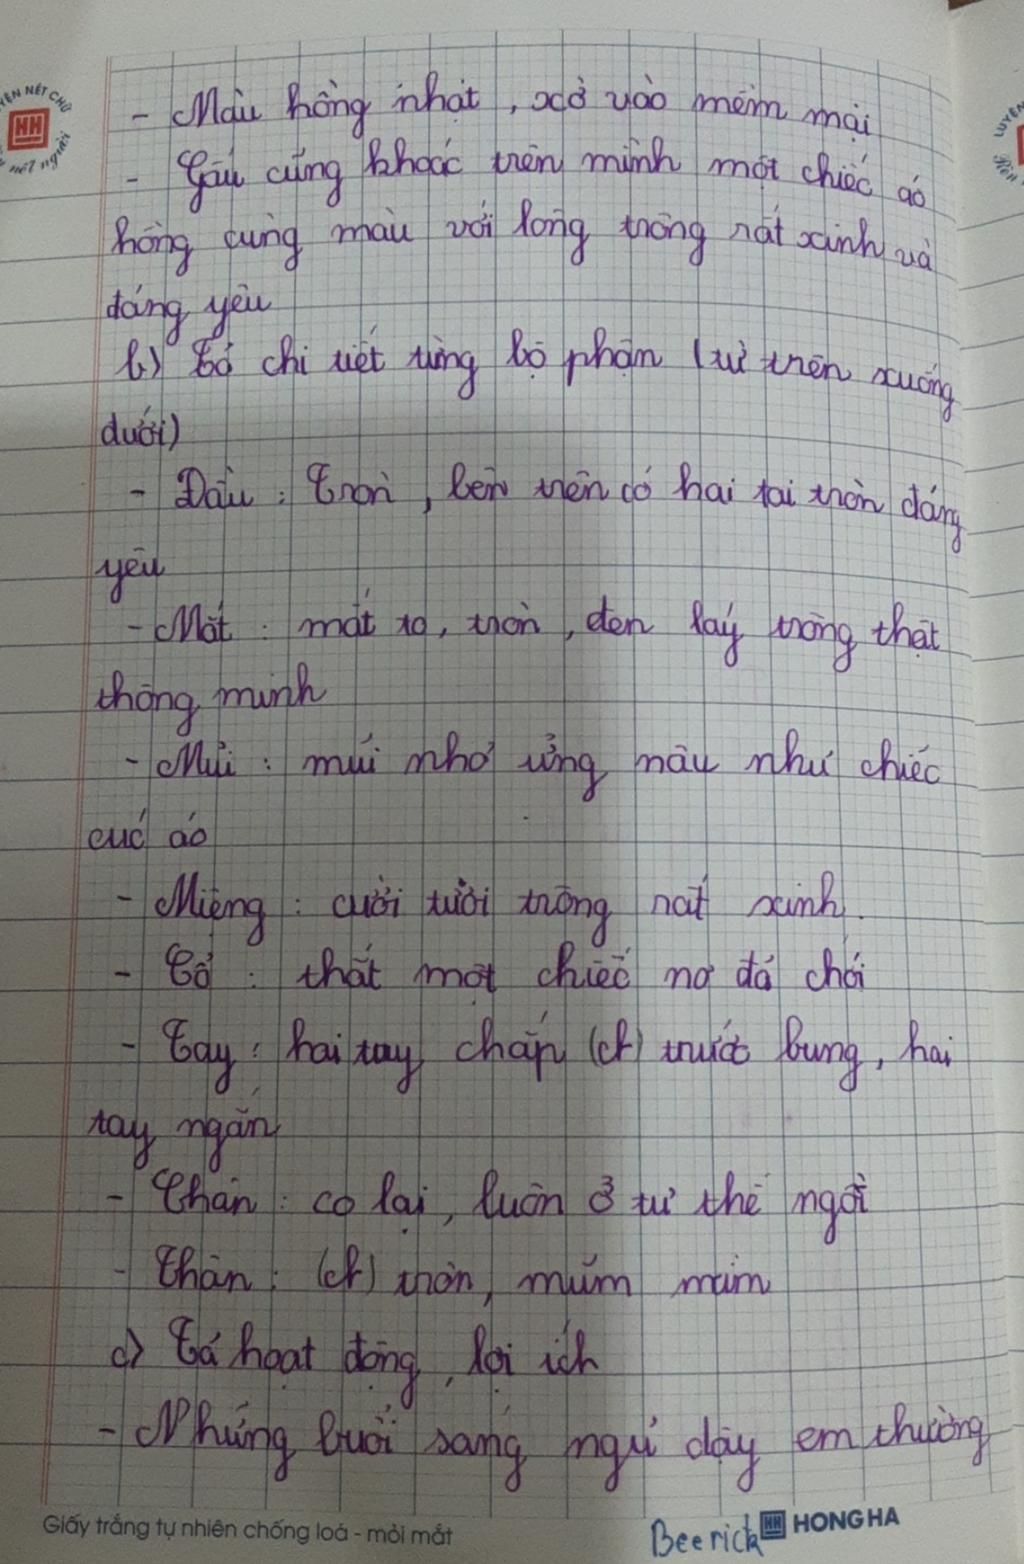 - Màu hồng nhạt, sờ vào mềm mại
- Gấu cũng khoác trên mình một chiếc áo
hồng cùng màu với lông trông rất xinh và
đáng yêu
b) Tả chi tiết từng bộ phận (từ trên xuống
dưới)
- Đầu: Tròn, bên trên có hai tai tròn đáng
yêu
- Mắt: mắt to, tròn, đen láy trông thật
thông minh
- Mũi: mũi nhỏ ửng nâu như chiếc
cúc áo
- Miệng: cười tươi trông rất xinh.
- Cổ: thắt một chiếc nơ đỏ chói
- Tay: hai tay chắp (ch) trước bụng, hai
tay ngắn
- Chân: co lại, luôn ở tư thế ngồi
- Thân: (ch) tròn, mũm mĩm
c) Tả hoạt động, lợi ích
- Những buổi sáng ngủ dậy em thường
Giấy trắng tự nhiên chống loá - mỏi mắt
Beerick HH HONG HA